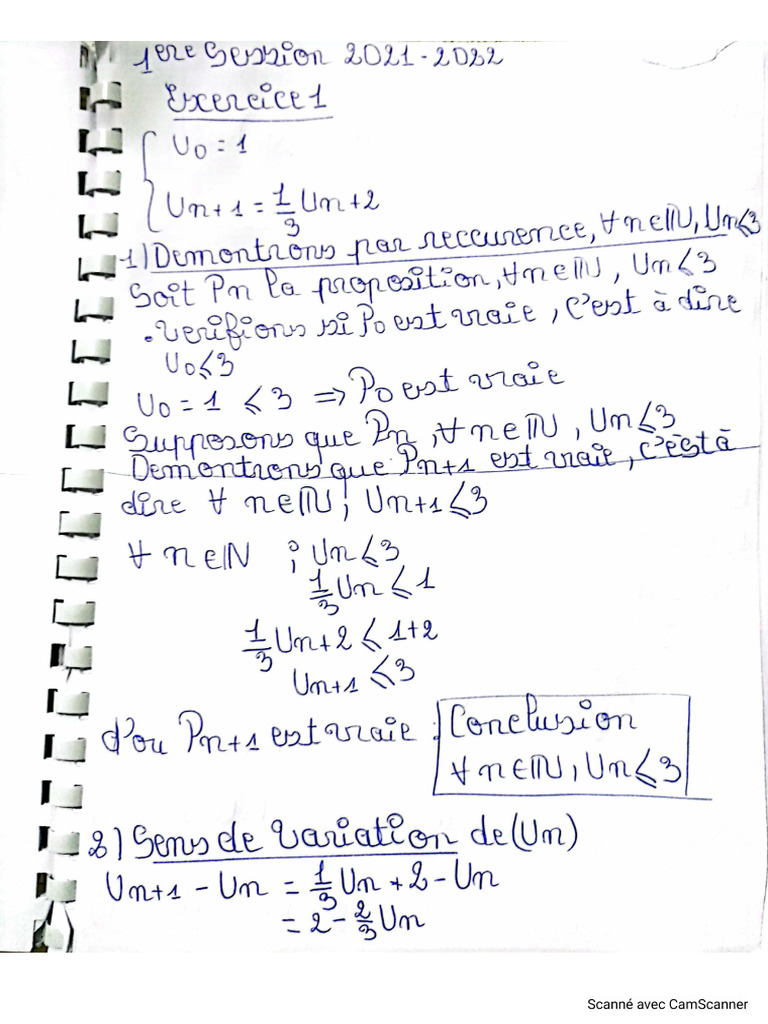 1ere Session 2021-2022
Exercice 1
{ U0 = 1
Un+1 = 1/3 Un+2
1) Demontrons par reccurence, ∀n∈ℕ, Un⩽3
Soit Pn la proposition, ∀n∈ℕ, Un⩽3
. Verifions si P0 est vraie, c'est à dire
U0⩽3
U0 = 1 ⩽3 => P0 est vraie
Supposons que Pn, ∀n∈ℕ, Un⩽3
Demontrons que Pn+1 est vraie, c'est à
dire ∀ n∈ℕ, Un+1⩽3
∀ n∈ℕ ; Un⩽3
1/3 Un ⩽ 1
1/3 Un+2 ⩽ 1+2
Un+1 ⩽3
d'ou Pn+1 est vraie : Conclusion
∀n∈ℕ, Un⩽3
2) Sens de variation de (Un)
Un+1 - Un = 1/3 Un + 2 - Un
= 2 - 2/3 Un
Scanné avec CamScanner